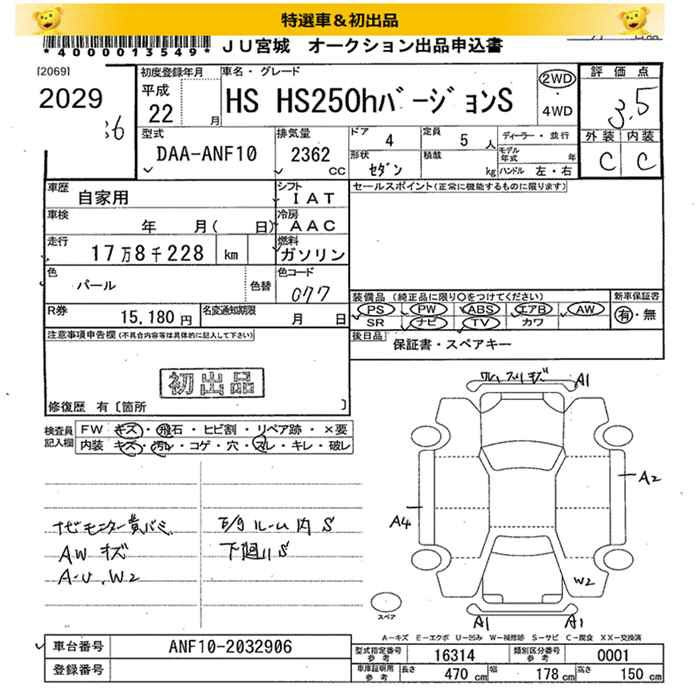 特選車＆初出品
*40000013549*
JU宮城 オークション出品申込書
[2069]
2029
初度登録年月
平成
22 月
車名・グレード
HS HS250hﾊﾞｰｼﾞｮﾝS
2WD
・
4WD
評価点
3.5
外装 内装
C C
型式
DAA-ANF10
排気量
2362 CC
ドア 4
定員 5 人
ディーラー・並行
モデル年式 年
形状 ｾﾀﾞﾝ
積載 kg
ハンドル 左・右
車歴
自家用
シフト
IAT
セールスポイント(正常に機能するものに限ります)
車検
年 月( 日)
冷房
AAC
走行
17万8千228 km
燃料
ガソリン
色
パール
色替
色コード
077
R券
15,180円
名変通知期限
月 日
装備品 (純正品に限り○をつけてください)
PS PW ABS エアB AW
SR ナビ TV カワ
新車保証書
有・無
後日品 保証書・スペアキー
注意事項申告欄(不具合内容等は具体的に記入して下さい)
初出品
修復歴 有〔箇所 〕
検査員記入欄
FW キズ・飛石・ヒビ割・リペア跡・×要
内装 キズ・汚レ・コゲ・穴・スレ・キレ・破レ
AW キズ
A-U. W2
ルーム内 S
下廻リ S
A1
A2
A4
W2
A1
A1
スペア
A-キズ E-エクボ U-凹み W-補修跡 S-サビ C-腐食 XX-交換済
車台番号 ANF10-2032906
登録番号
型式指定番号参考 16314
類別区分番号参考 0001
車庫証明用参考
長さ 470 cm
幅 178 cm
高さ 150 cm